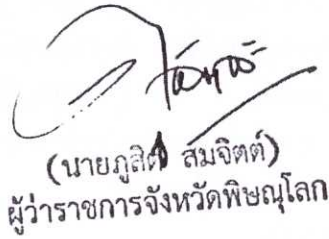 (นายภูสิต สมจิตต์)
ผู้ว่าราชการจังหวัดพิษณุโลก